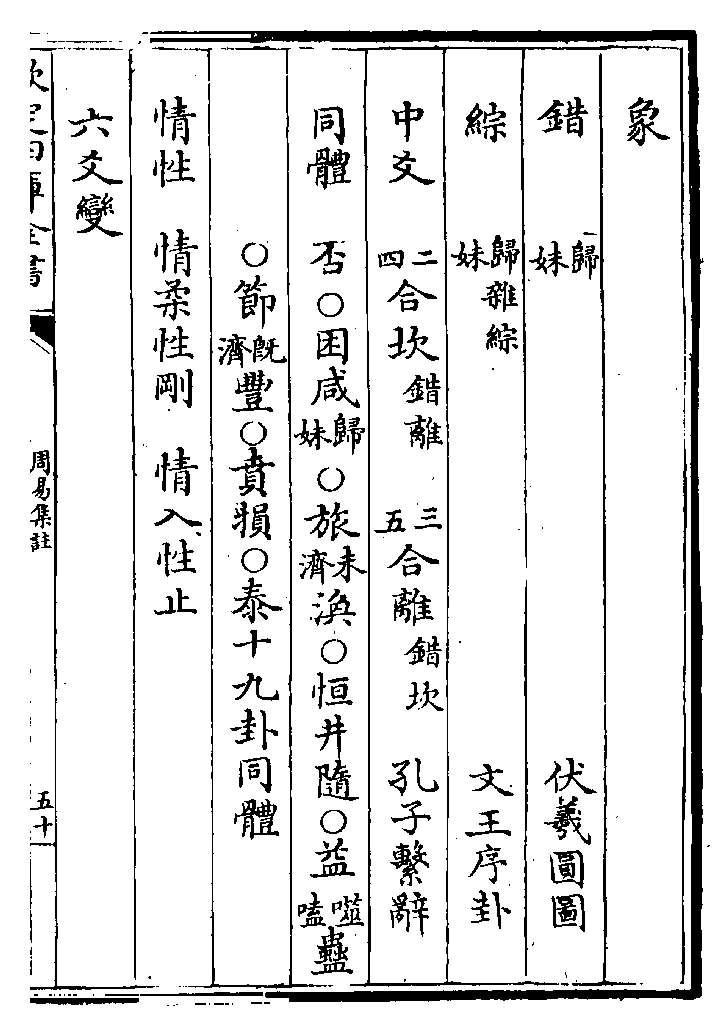 象
錯 歸妹 伏羲圓圖
綜 歸妹雜綜 文王序卦
中爻 二四合坎錯離 三五合離錯坎 孔子繫辭
同體 否○困咸歸妹○旅未濟渙○恒井隨○益噬嗑蠱
○節既濟豐○賁損○泰十九卦同體
情性 情柔性剛 情入性止
六爻變
欽定四庫全書
周易集註
五十